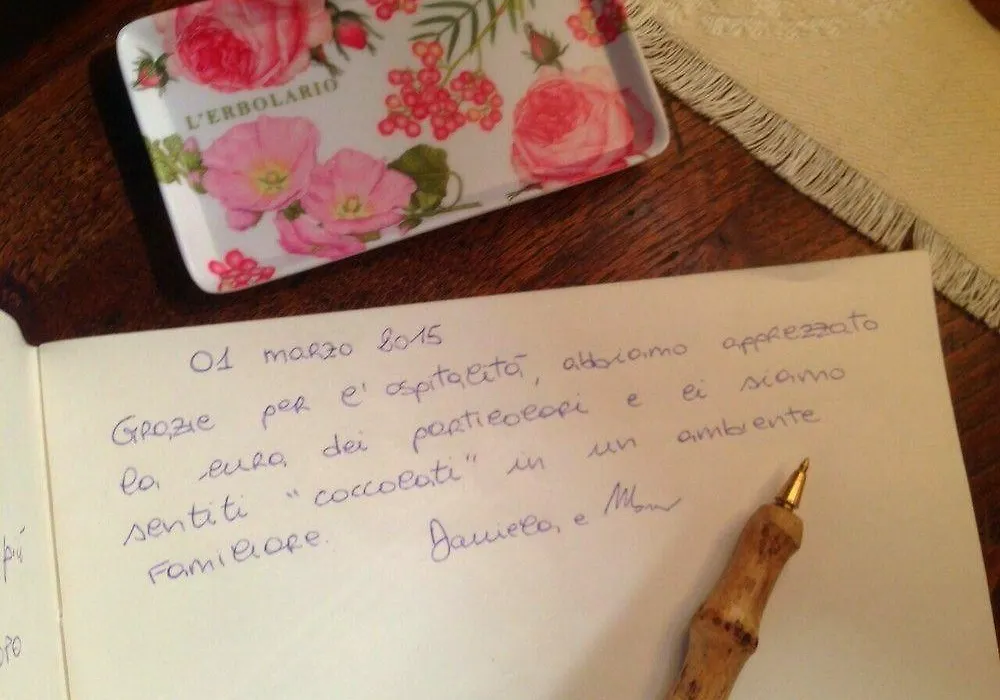 L'ERBOLARIO
01 marzo 2015
Grazie per l'ospitalità, abbiamo apprezzato
la cura dei particolari e ci siamo
sentiti "coccolati" in un ambiente
familiare.
Daniela e
più